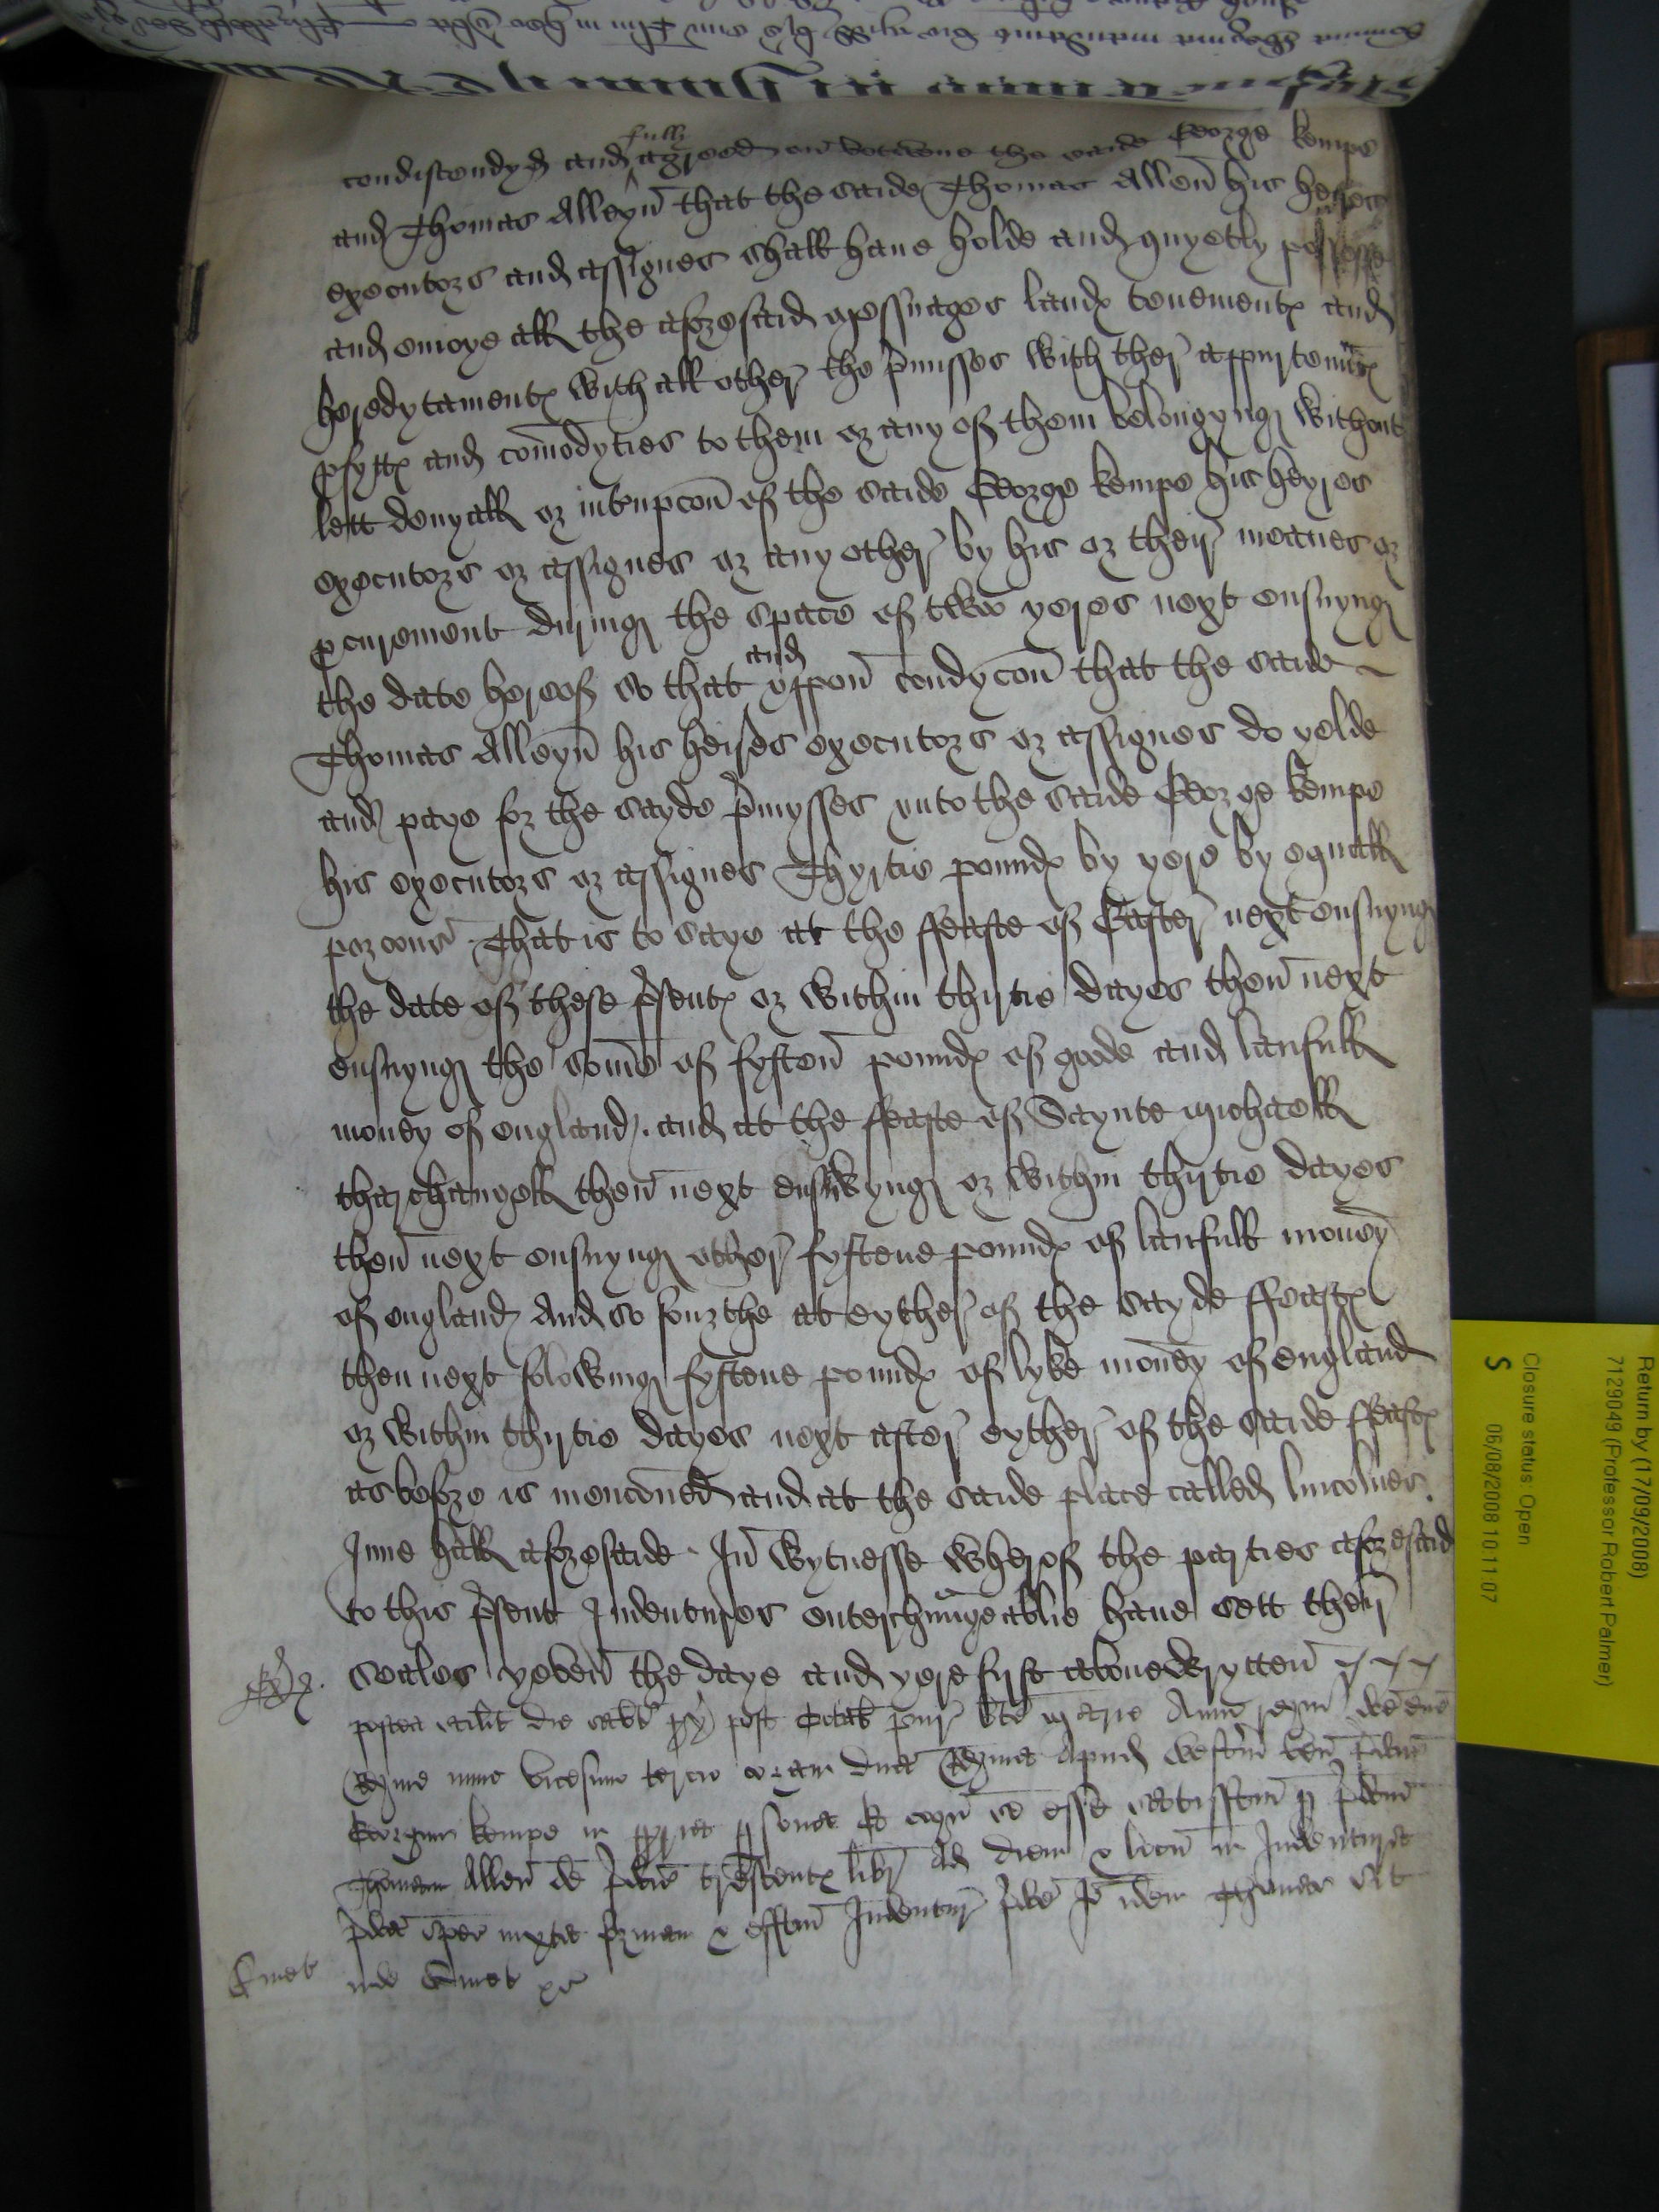 condiscendyd and fully agreed on betwene the saide George Kempe
and Thomas Alleyn that the saide Thomas Allen his heires
executors and assignes shall have holde and quyetly possesse
and enioye all the aforesaid messuages landes tenementes and
heredytamentes with all other the pmisses with ther appurtennces
pfyttes and comodyties to them or any of them belongyng without
lett denyall or intrupcon of the saide George Kempe his heyres
executors or assignes or any other by his or their meanes or
pcurement during the space of two yeres next ensuyng
the date hereof so that and uppon condycon that the saide
Thomas Alleyn his heires executors or assignes do yelde
and paye for the sayde pmysses unto the saide George Kempe
his executors or assignes Thyrtie poundes by yere by equall
porcons That is to saye at the ffeaste of Easter next ensuyng
the date of these psentes or within thirtie dayes then next
ensuyng the some of fyften poundes of goode and laufull
money of england. and at the ffeaste of Saynte Michaell
tharchangell then next ensuyng or within thirtie dayes
then next ensuyng other fyftene poundes of laufull money
of england And so fourthe at eyther of the sayde ffeastes
then next folowing fyftene poundes of lyke money of england
or within thirtie dayes next after eyther of the saide ffeastes
as before is menconed and at the saide place called lincolnes
Inne hall aforesaide. In wytnesse wherof the parties aforesaid
to this psent Indentures enterchaungeablie have sett their
seales yeven the daye and yere first above wrytten
postea scilt die post Octab pur bte Marie Anno regni dce dne
Regine nunc vicesimo tercio coram dna Regina apud Westm ven
Georgius Kempe in ppria psona et cogn se esse satisfcm p pdcm
Thomam Allen de pdcis libr Ad diem & locu in Indentura
pdca iuxta formam & effcm Indentur pdce Io idem Thomas sit
inde Quiet &c
Quiet
Return by (17/09/2008)
7129049 (Professor Robert Palmer)
Closure status: Open
S 06/08/2008 10:11:07